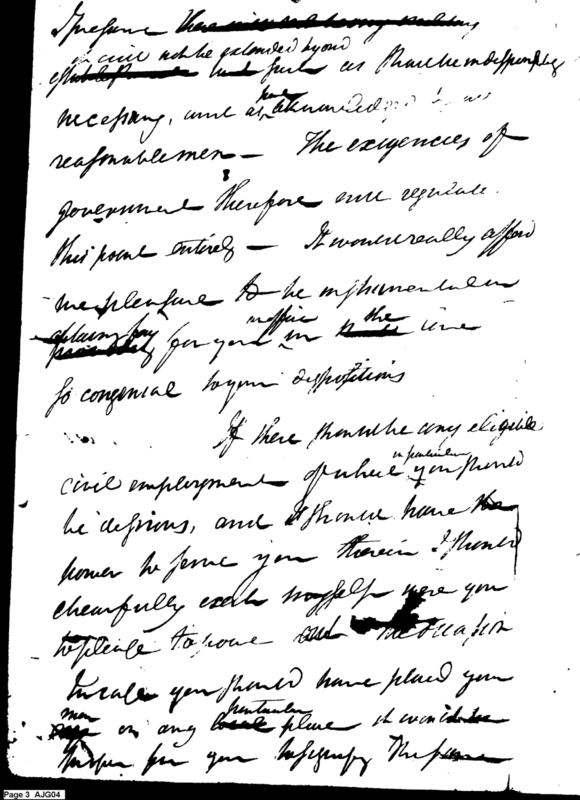 I presume there will not be any
civil not be extended beyond
establishments and such as shall be indispensibly
necessary, and as acknowledged by
reasonable men — The exigencies of
government therefore must regulate
this point entirely — It would really afford
me pleasure to be instrumental in
obtaining for you an office in the line
so congenial to your dispositions
If there should be any eligible
civil employment of which in particular you should
be desirous, and I should have the
power to serve you therein I should
chearfully exert myself were you
to please to point out
In case you should have placed your
on any particular place it would be
proper for you to signify the same
Page 3 AJG04